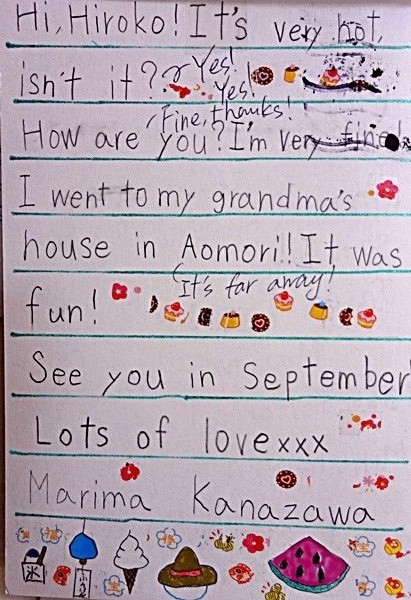 Hi, Hiroko! It's very hot,
isn't it? Yes!
Yes!
Fine, thanks!
How are you? I'm very fine!
I went to my grandma's
house in Aomori!! It was
It's far away!
fun!
See you in September
Lots of love xxx
Marima Kanazawa
氷